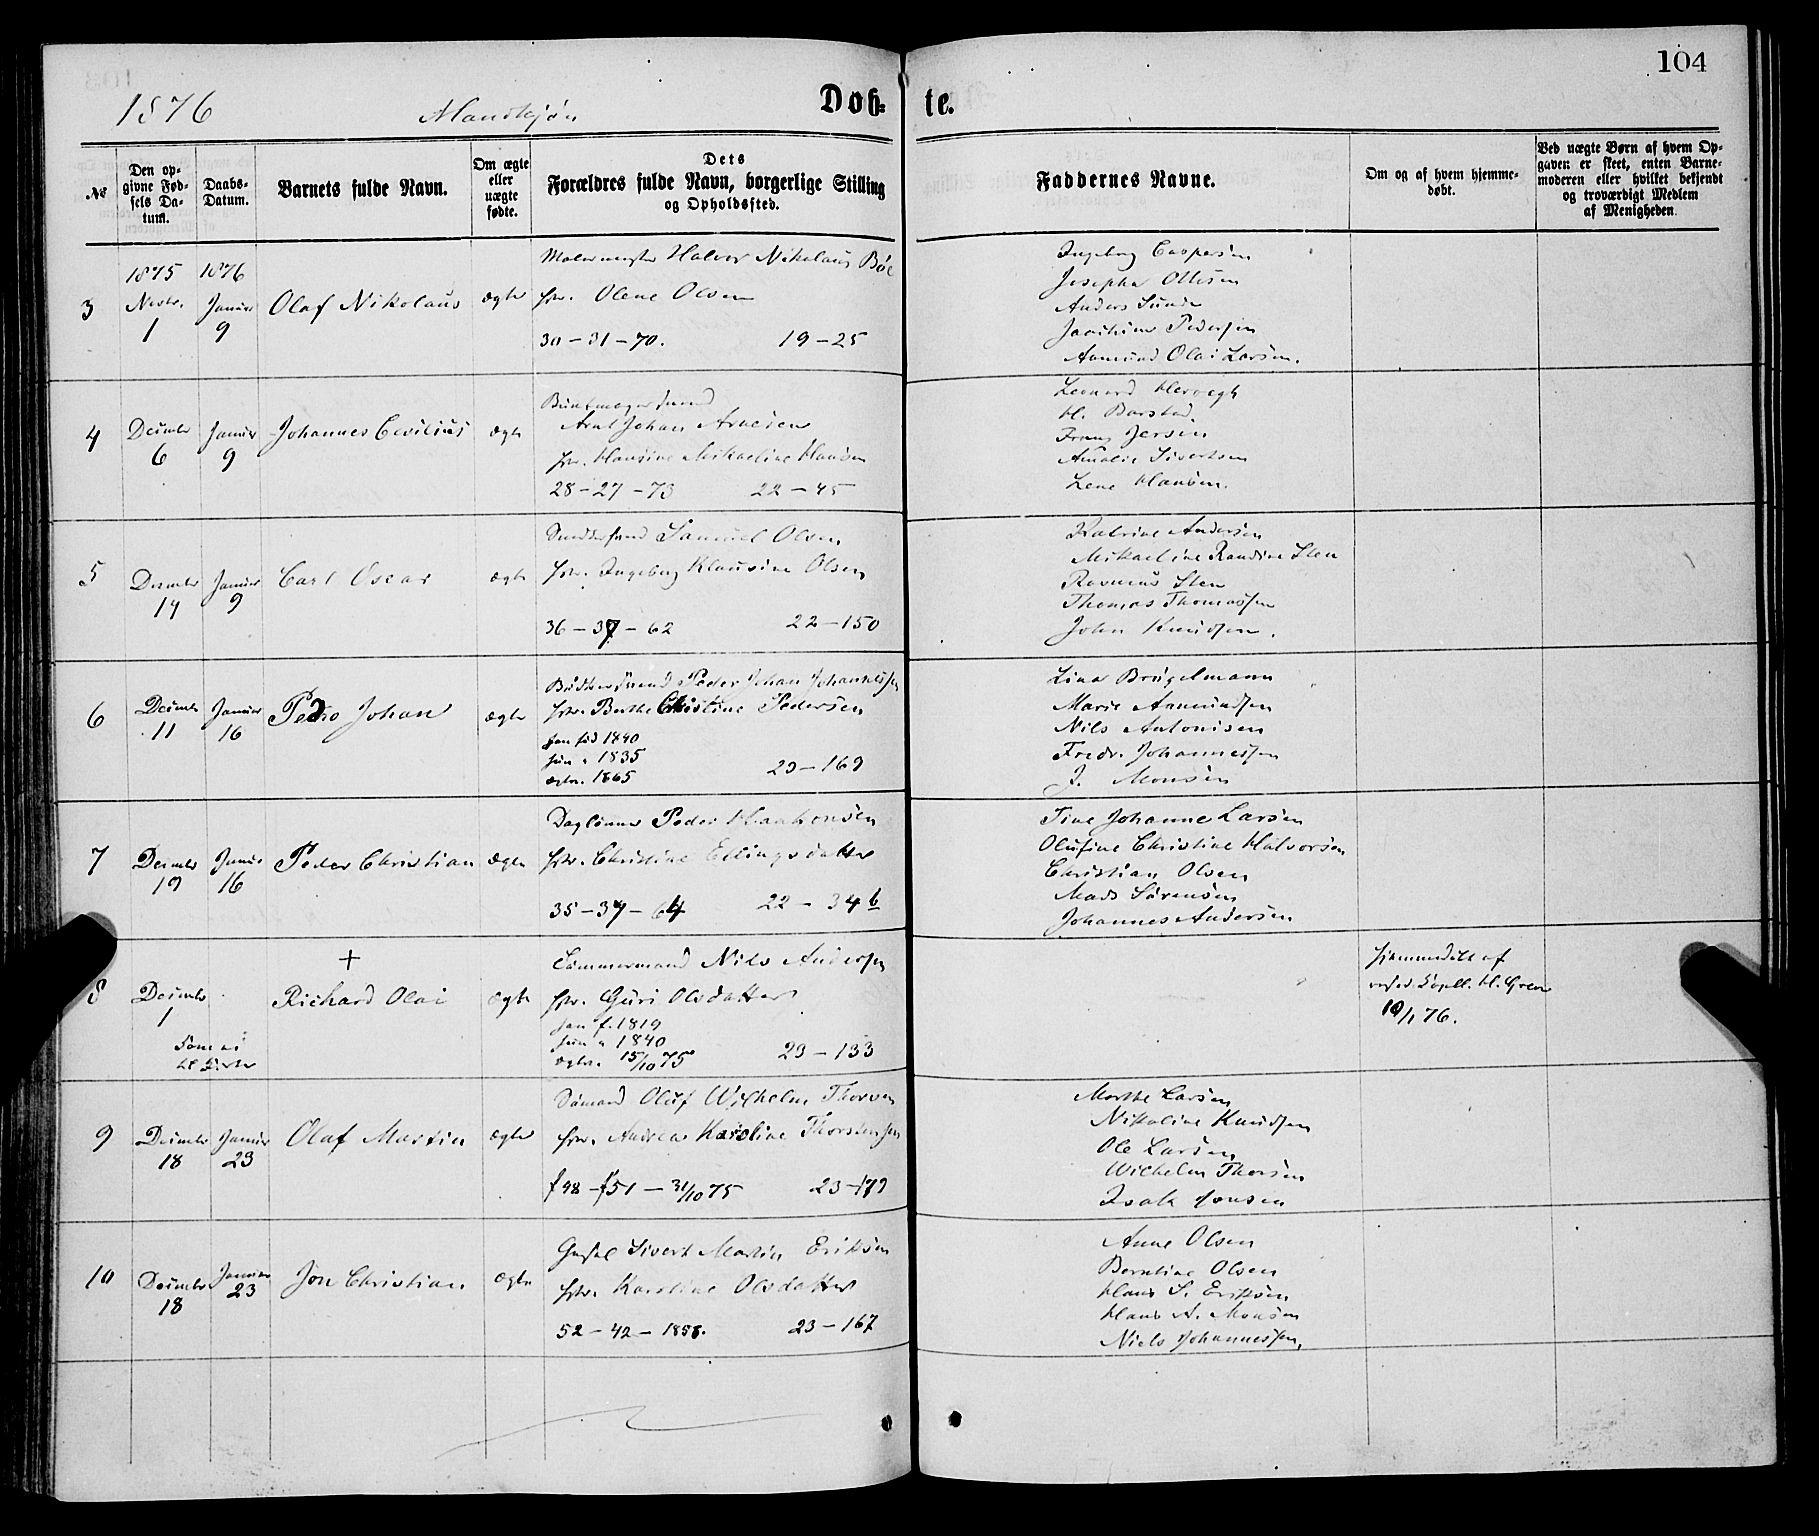 104
1876 Mandkjøn Døbte.
№
Den opgivne Fødsels Datum.
Daabs-Datum.
Barnets fulde Navn.
Om ægte eller uægte fødte.
Dets Forældres fulde Navn, borgerlige Stilling og Opholdssted.
Faddernes Navne.
Om og af hvem hjemmedøbt.
Ved uægte Børn af hvem Opgaven er skeet, enten Barnemoderen eller hvilket bekjendt og troværdigt Medlem af Menigheden.
1875 1876
3 Novbr. 1 Januar 9 Olaf Nikolaus ægte
Malermester Halvor Nikolaus Böe
Hstr. Olene Olsen
30-31-70. 19-25
Ingeborg Caspersen
Josepha Ottesen
Anders Sunde
Joachim Pedersen
Aamund Olai Larsen.
4 Decembr 6 Januar 9 Johannes Cecilius ægte
Arnt Johan Arnesen
Hstr. Hansine Mikaeline Hansen
28-27-73 22-45
Leonard Herwegh
H. Barstad
Frans Jersin
Amalie Sivertsen
Lene Hansen.
5 Decembr 14 Januar 9 Carl Oscar ægte
Samuel Olsen
Hstr. Ingeborg Klausine Olsen
36-37-62 22-150
Katrine Andersen
Mikaeline Randine Sten
Rasmus Sten
Thomas Thomassen
John Knudsen.
6 Decembr 11 Januar 16 Pedro Johan ægte
Bödkersvend Peder Johan Johannessen
Hstr. Berthe Christine Pedersen
han född 1840
hun " 1835
ægtev. 1865 23-169
Lina Brügelmann
Marie Aamundsen
Nils Antonisen
Fredr. Johannessen
J. Monsen
7 Decembr 19 Januar 16 Peder Christian ægte
Daglönner Peder Haakonsen
Hstr. Christine Ellingsdatter
35-37-64 22-346
Tine Johanne Larsen
Olufine Christine Halvorsen
Christian Olsen
Mads Sörensen
Johannes Andersen
+
8 Decembr 1 Richard Olai ægte
Tömmermand Nils Andersen
Hstr. Guri Olsdatter
han f. 1819
hun " 1840
ægtev. 15/10 75 23-133
Hjemmedöbt af
resid. Capell. H. Greve
10/1 76.
9 Decembr 18 Januar 23 Olaf Martin ægte
Sömand Oluf Wilhelm Thorsen
Hstr. Andrea Karoline Thorstensen
f 48 - f 51 - 31/10 75 23-179
Marthe Larsen
Nikoline Knudsen
Ole Larsen
Wilhelm Thorsen
Isak Jonsen
10 Decembr 18 Januar 23 Jon Christian ægte
Sivert Martin Eriksen
Hstr. Karoline Olsdatter
52-42-1858. 23-167
Anne Olsen
Berntine Olsen
Hans S. Eriksen
Hans A. Monsen
Niels Johannessen.